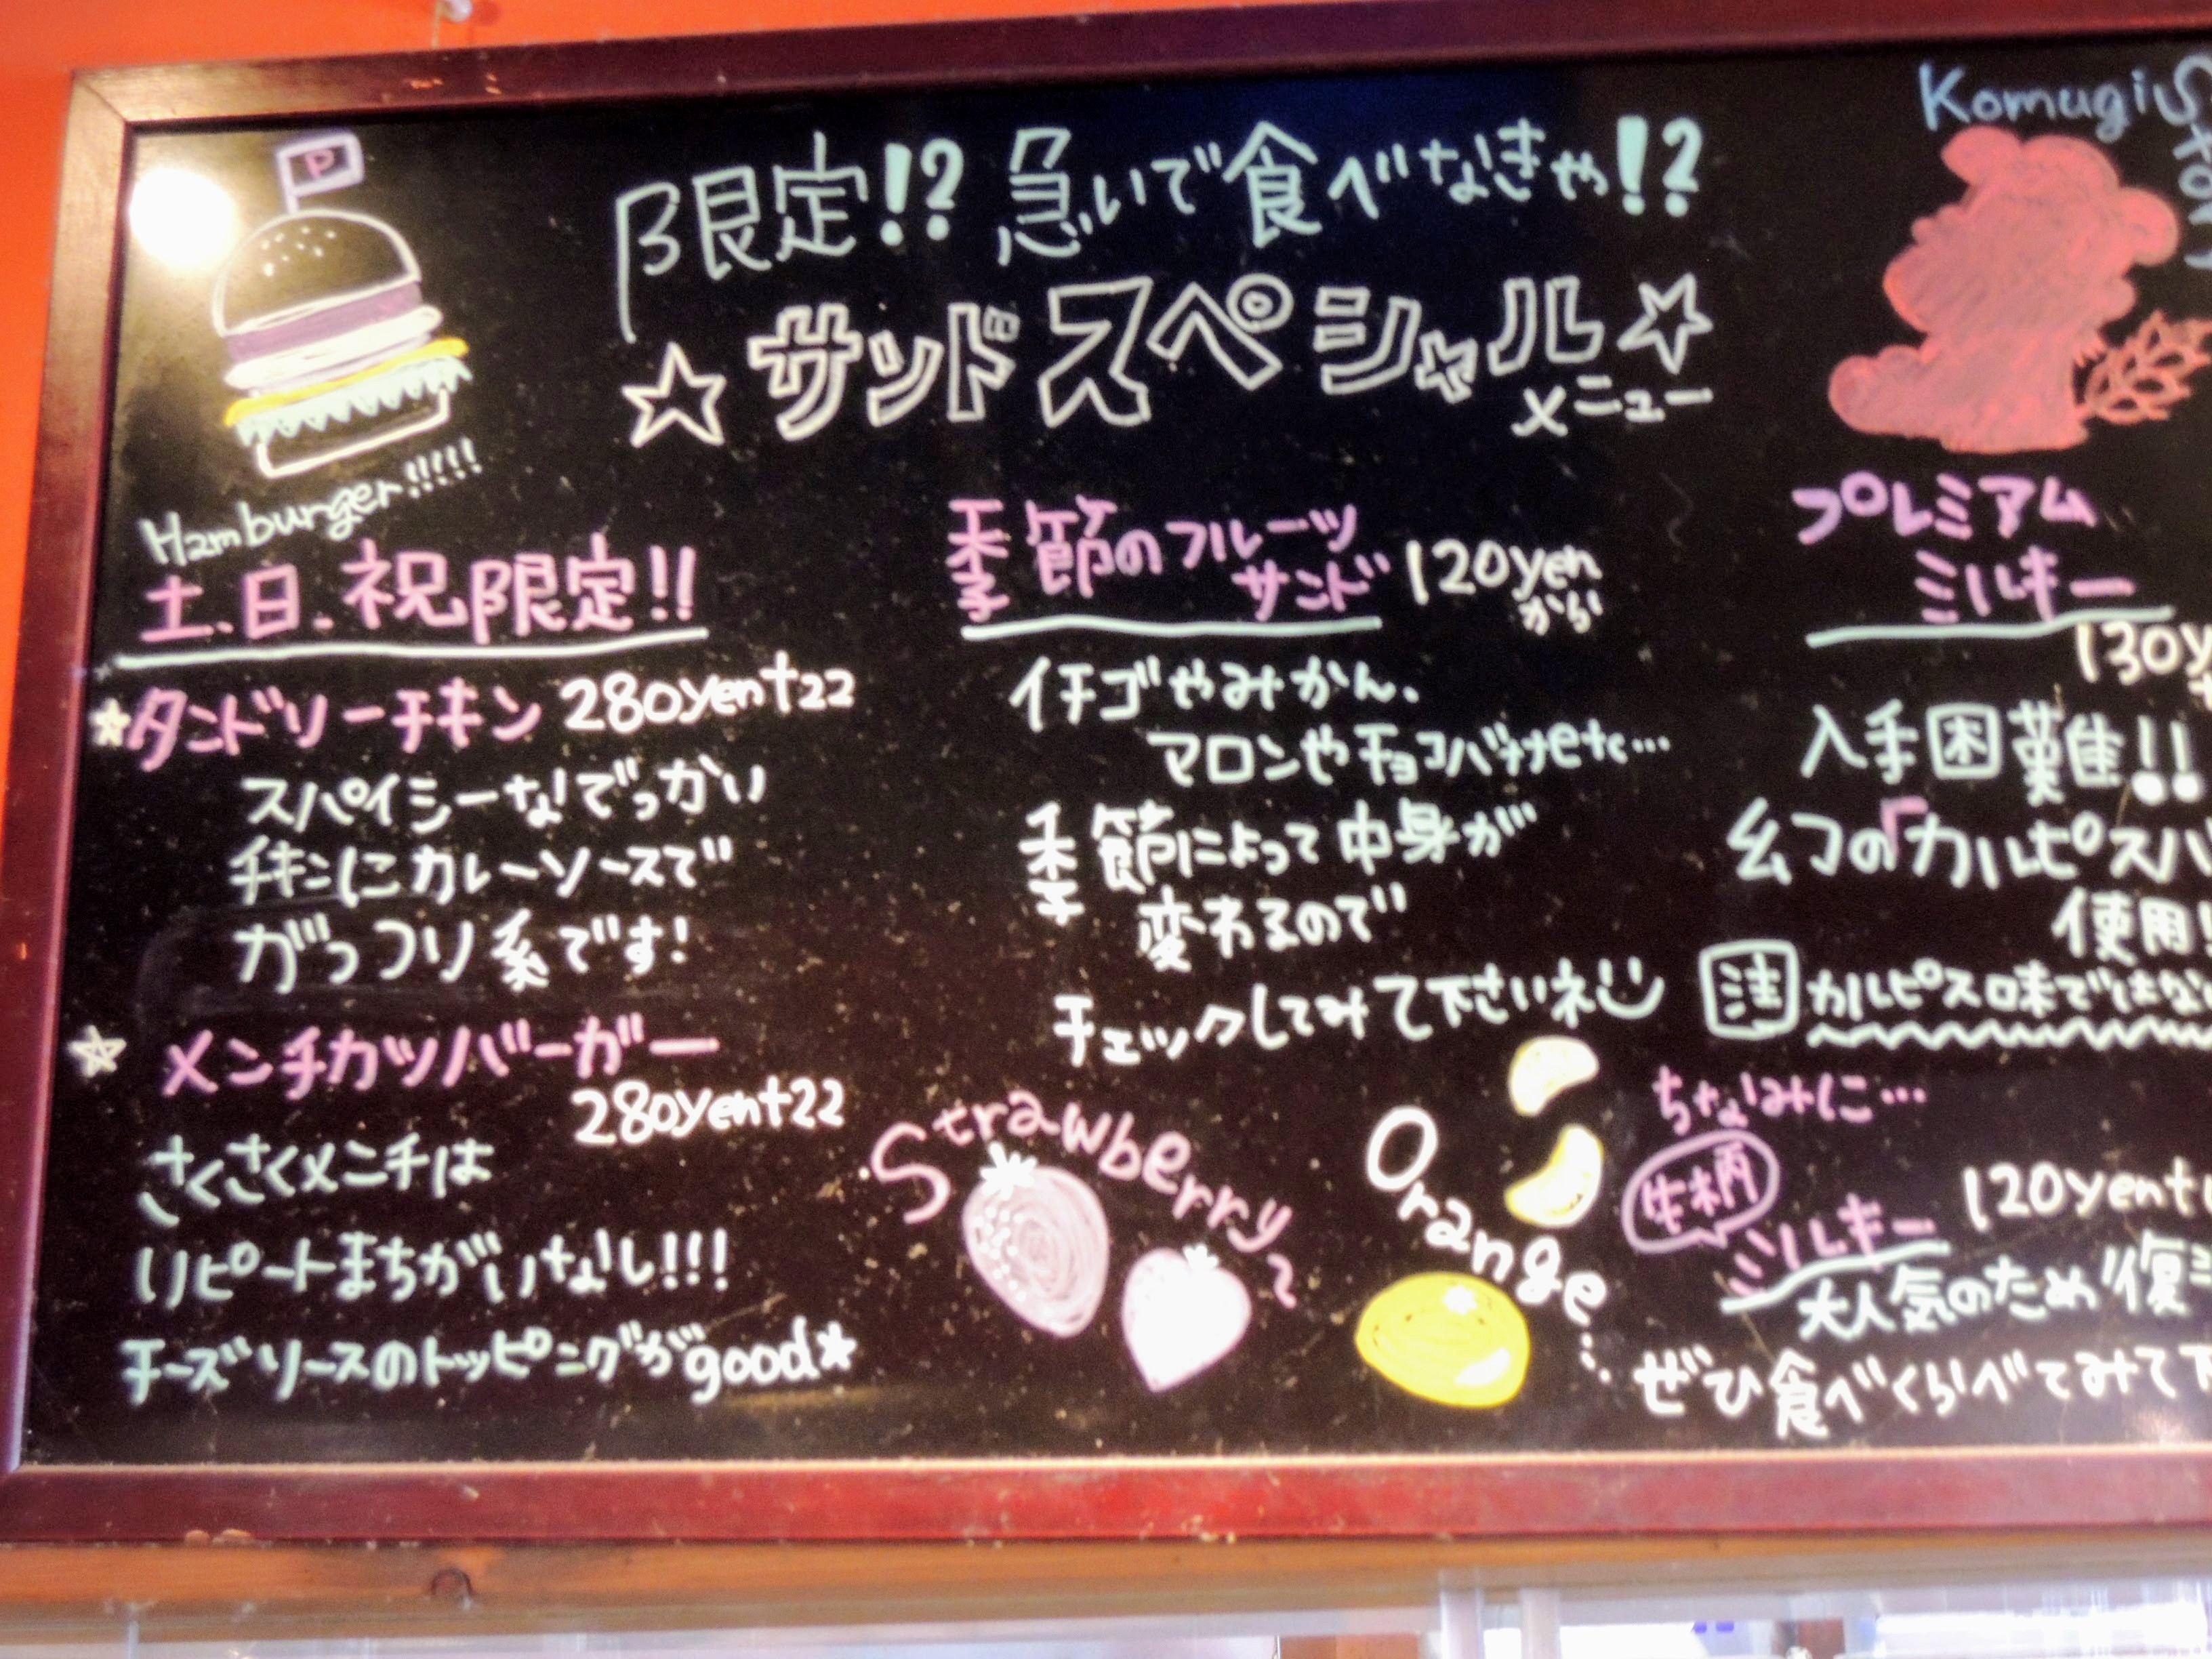 P
Hamburger!!!!!
限定!? 急いで食べなきゃ!?
☆サンドスペシャル☆
メニュー
Komugi
土.日.祝限定!!
☆タンドリーチキン 280yen+22
スパイシーなでっかい
チキンにカレーソースで
がっつり系です!
☆メンチカツバーガー
280yen+22
さくさくメンチは
リピートまちがいなし!!!
チーズソースのトッピングがgood★
季節のフルーツ
サンド 120yen
から
イチゴやみかん、
マロンやチョコバナナetc…
季節によって中身が
変わるので
チェックしてみて下さいネ
Strawberry~
Orange...
プレミアム
ミルキー
130y
入手困難!!
幻の「カルピスバ
使用!
注 カルピス味ではな
ちなみに…
牛柄
ミルキー 120yen+
大人気のため復
ぜひ食べくらべてみて下